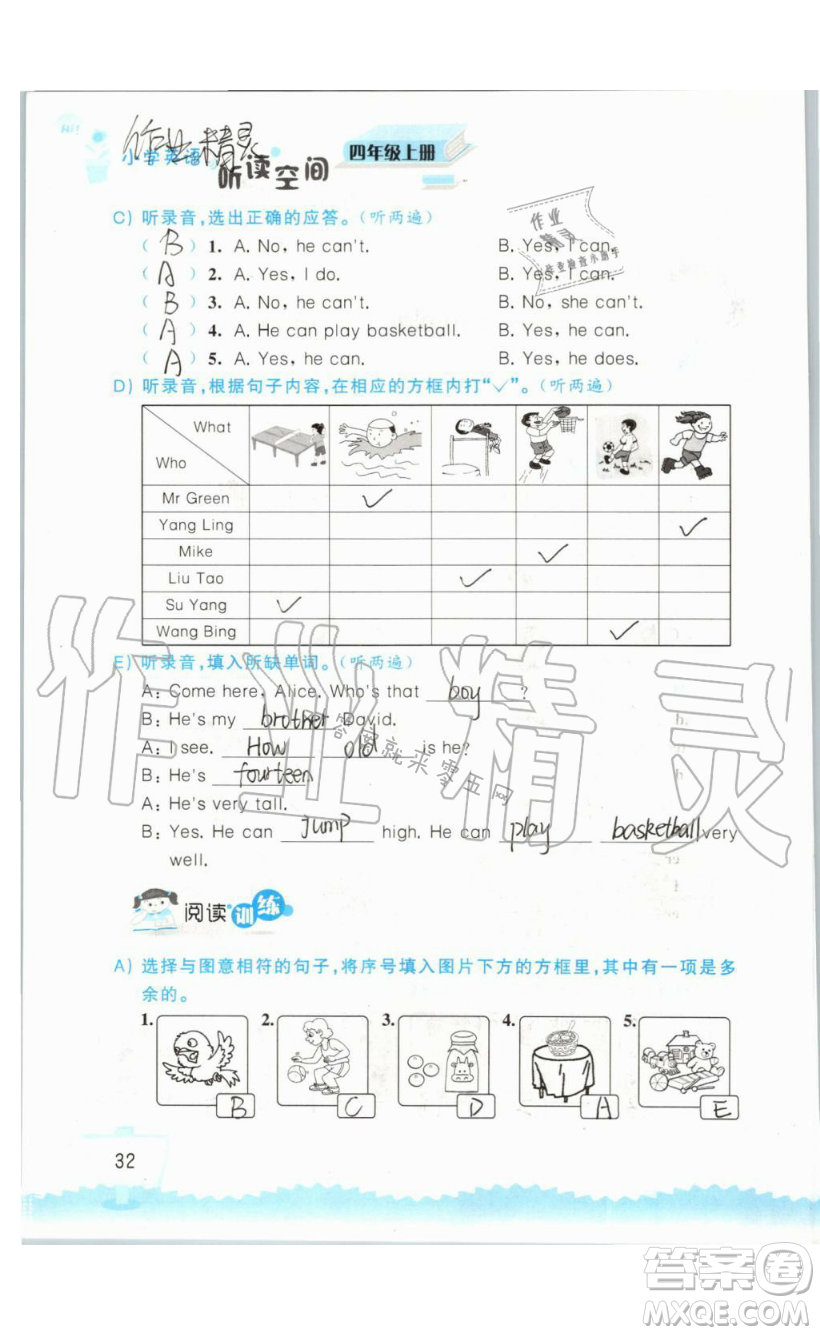 Hi!
作业精灵
小学英语
听读空间
四年级上册
C) 听录音,选出正确的应答。(听两遍)
作业
精灵
作业检查小助手
( B ) 1. A. No, he can't. B. Yes, I can.
( A ) 2. A. Yes, I do. B. Yes, I can.
( B ) 3. A. No, he can't. B. No, she can't.
( A ) 4. A. He can play basketball. B. Yes, he can.
( A ) 5. A. Yes, he can. B. Yes, he does.
D) 听录音,根据句子内容,在相应的方框内打“✓”。(听两遍)
What
Who
Mr Green ✓
Yang Ling ✓
Mike ✓
Liu Tao ✓
Su Yang ✓
Wang Bing ✓
E) 听录音,填入所缺单词。(听两遍)
A: Come here, Alice. Who's that boy ?
B: He's my brother David.
A: I see. How old is he?
B: He's fourteen
A: He's very tall.
B: Yes. He can jump high. He can play basketball very
well.
作业精灵
答案就来零五网
阅读训练
A) 选择与图意相符的句子,将序号填入图片下方的方框里,其中有一项是多
余的。
1. 2. 3. 4. 5.
B C D A E
32
答案卷
MXQE.COM